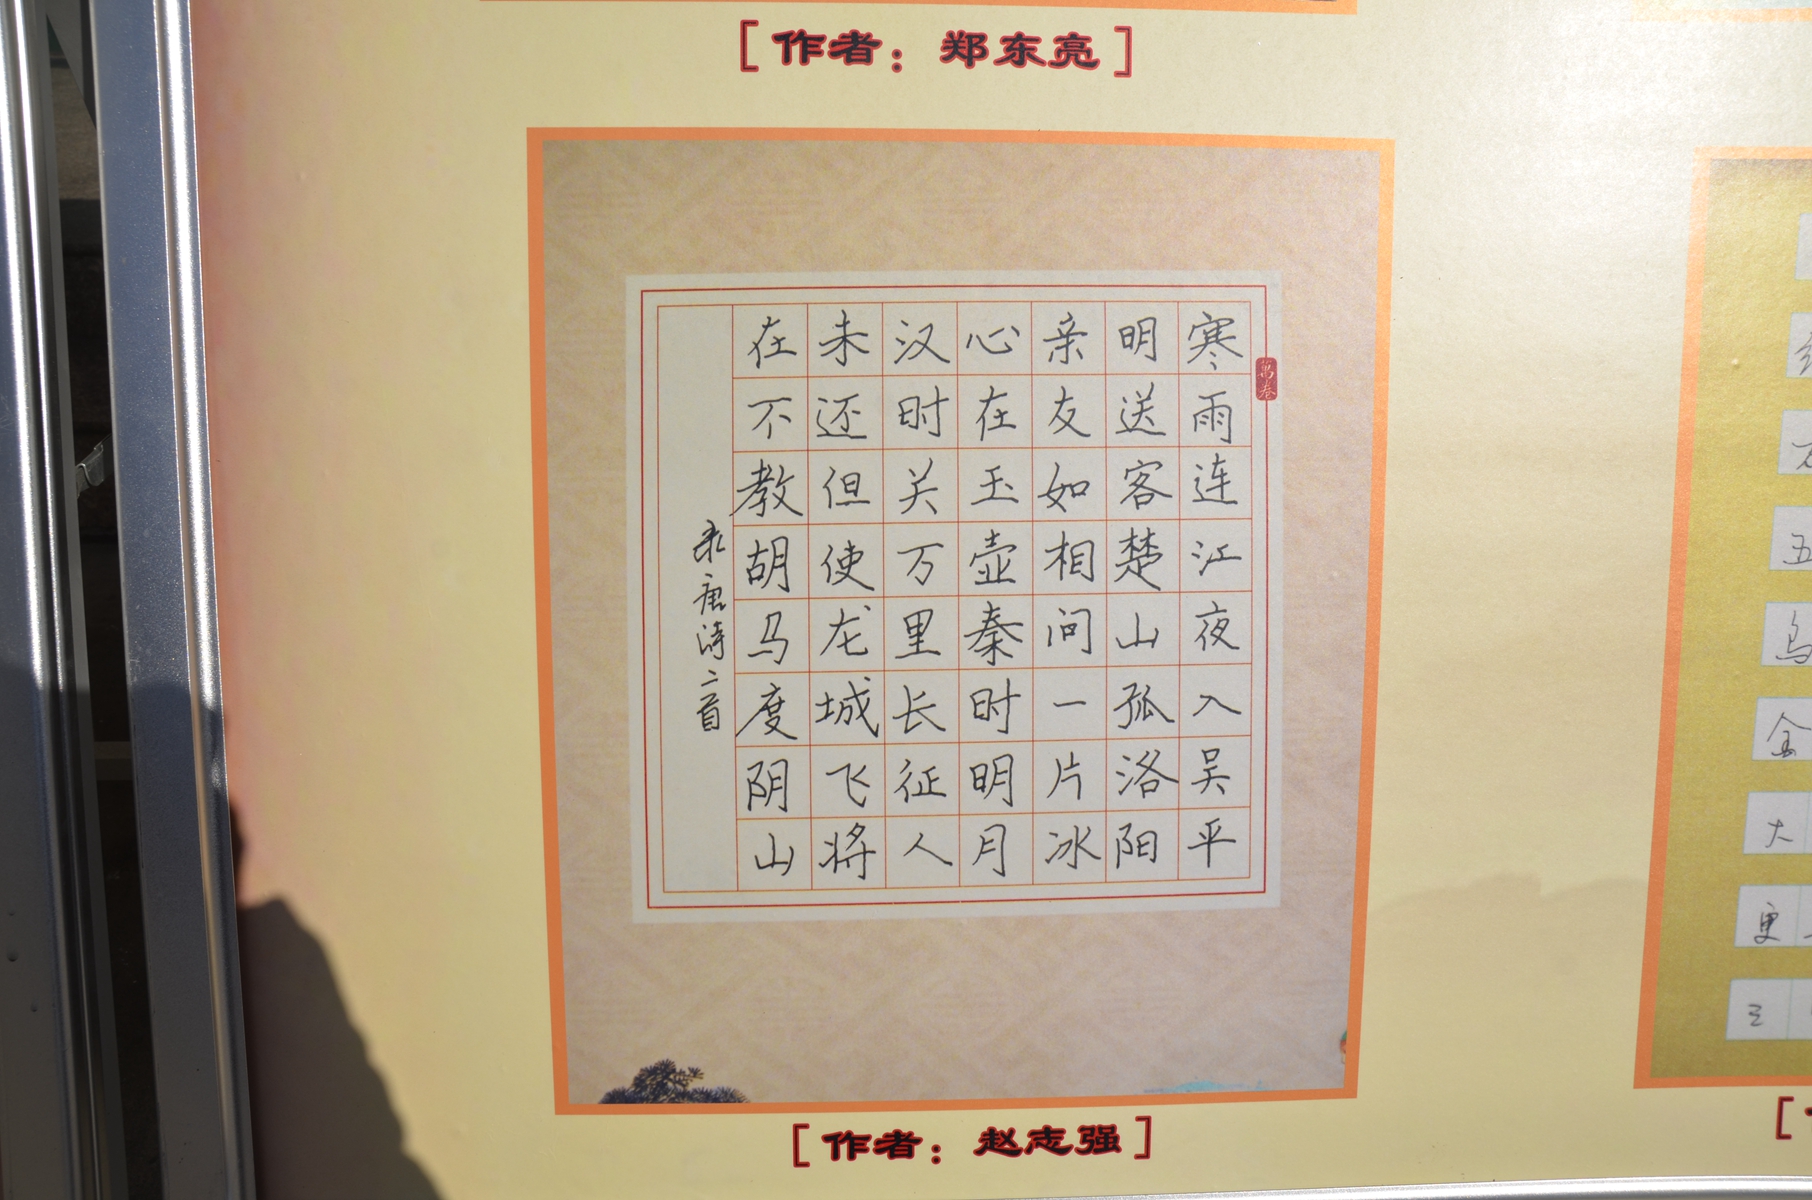 [作者：郑东亮]
寒雨连江夜入吴平
明送客楚山孤洛阳
亲友如相问一片冰
心在玉壶秦时明月
汉时关万里长征人
未还但使龙城飞将
在不教胡马度阴山
录唐诗二首
萬卷
[作者：赵志强]
五
大更三